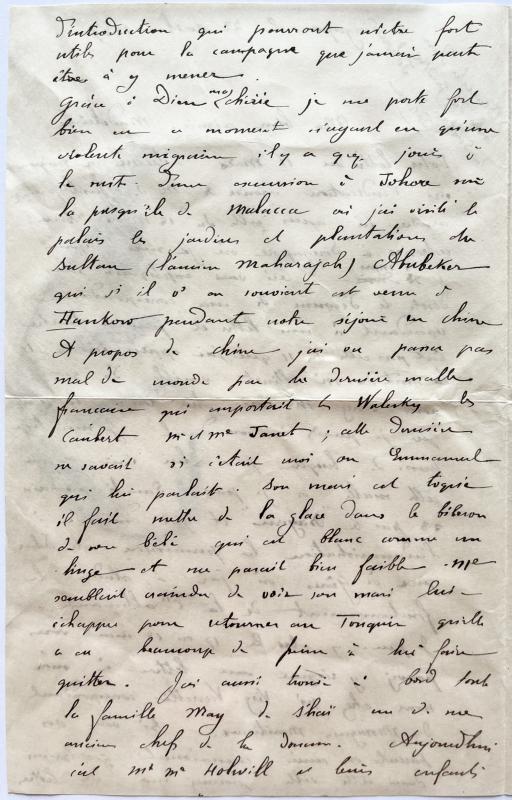 d'introduction qui pourront m'être fort
utiles pour la campagne que j'aurai peut
être à y mener.
Grâce à Dieu ma chérie je me porte fort
bien en ce moment n'ayant eu qu'une
violente migraine il y a qq. jours à
la suite d'une excursion à Johore sur
la presqu'île de Malacca où j'ai visité le
palais les jardins et plantations du
Sultan (l'ancien Maharajah) Abubeker
qui si il v's en souvient est venu à
Hankow pendant notre séjour en Chine
A propos de Chine j'ai vu passer pas
mal de monde par la dernière malle
française qui emportait les Walesky les
Caubert Mr et Me Janet ; cette dernière
ne savait si c'était moi ou Emmanuel
qui lui parlait. Son mari est toqué
il fait mettre de la glace dans le biberon
de son bébé qui est blanc comme un
linge et me parait bien faible. Me
semblait craindre de voir son mari lui
échapper pour retourner au Tonquin qu'elle
a eu beaucoup de peine à lui faire
quitter. J'ai aussi trouvé à bord toute
la famille May de Shaï un de mes
anciens chefs de la douane. Aujourdhui
c'est Mr Me Holwill et leurs enfants